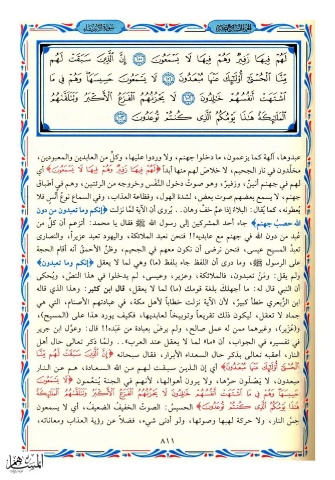 سورة الأنبياء
لَهُمْ فِيهَا زَفِيرٌ وَهُمْ فِيهَا لَا يَسْمَعُونَ ۝ إِنَّ الَّذِينَ سَبَقَتْ لَهُم
مِّنَّا الْحُسْنَىٰ أُولَٰئِكَ عَنْهَا مُبْعَدُونَ ۝ لَا يَسْمَعُونَ حَسِيسَهَا وَهُمْ فِي مَا
اشْتَهَتْ أَنفُسُهُمْ خَالِدُونَ ۝ لَا يَحْزُنُهُمُ الْفَزَعُ الْأَكْبَرُ وَتَتَلَقَّاهُمُ
الْمَلَائِكَةُ هَٰذَا يَوْمُكُمُ الَّذِي كُنتُمْ تُوعَدُونَ
عبدوها، آلهة كما يزعمون، ما دخلوا جهنم، ولا وردوا عليها، وكل من العابدين والمعبودين،
مخلدون في نار الجحيم، لا خلاص لهم منها أبداً ﴿لَهُمْ فِيهَا زَفِيرٌ وَهُمْ فِيهَا لَا يَسْمَعُونَ﴾ أي
لهم في جهنم أنين، وزفير، وهو صوت دخول النَّفَس وخروجه من الرئتين، وهم في أطباق
جهنم، لا يسمع بعضهم صوت بعض، لشدة الهول، وفظاعة العذاب، وفي السماع نوع أنس فلا
يُعطونه، كما يُقال: البلاء إذا عمَّ خفَّ وهان.. يُروى أن الآية لمّا نزلت ﴿إنكم وما تعبدون من دون
الله حصب جهنم﴾ جاء أحد المشركين إلى رسول الله ﷺ فقال يا محمد: أتزعم أن كل من
عُبد من دون الله في جهنم مع عابديه!! فنحن نعبد الملائكة، واليهود تعبد عزيراً، والنصارى
تعبد المسيح عيسى، فنحن نرضى أن نكون معهم في الجحيم، وظنّ الأحمق أنه أقام الحجة
على الرسول ﷺ، وما درى أن اللفظ جاء بلفظ (ما) وهي لما لا يعقل ﴿إنكم وما تعبدون﴾
ولم يقل: ومَنْ تعبدون، فالملائكة، وعزير، وعيسى، لم يدخلوا في هذا النصّ، ويُحكى
أن النبي قال له: ما أجهلك بلغة قومك (ما) لما لا يعقل، قال ابن كثير: وهذا الذي قاله
ابن الزبعرى خطأ كبيرٌ، لأن الآية نزلت خطاباً لأهل مكة، في عبادتهم الأصنام، التي هي
جماد لا تعقل، ليكون ذلك تقريعاً وتوبيخاً لعابديها، فكيف يورد هذا على (المسيح)،
و(عُزير)، وغيرهما ممن له عمل صالح، ولم يرضَ بعبادة من عَبَده!! قال: وعوَّل ابن جرير
في تفسيره في الجواب، أن «ما» لما لا يعقل عند العرب.. ولمّا ذكر تعالى حال أهل
النار، أعقبه تعالى بذكر حال السعداء الأبرار، فقال سبحانه ﴿إِنَّ الَّذِينَ سَبَقَتْ لَهُم مِّنَّا
الْحُسْنَىٰ أُولَٰئِكَ عَنْهَا مُبْعَدُونَ﴾ أي إن الذين سبقت لهم من الله السعادة، هم عن النار
مبعدون، لا يَصْلَون حرَّها، ولا يرون أهوالها، لأنهم في الجنة ينعمون ﴿لَا يَسْمَعُونَ
حَسِيسَهَا وَهُمْ فِي مَا اشْتَهَتْ أَنفُسُهُمْ خَالِدُونَ لَا يَحْزُنُهُمُ الْفَزَعُ الْأَكْبَرُ وَتَتَلَقَّاهُمُ الْمَلَائِكَةُ
هَٰذَا يَوْمُكُمُ الَّذِي كُنتُمْ تُوعَدُونَ﴾ الحسيسُ: الصوتُ الخفيف الضعيف، أي لا يسمعون
حِسَّ النار، ولا حركة لهيبها وصوتها، ولو أدنى شيء، فضلاً عن رؤية العذاب ومعاناته،
٨١١